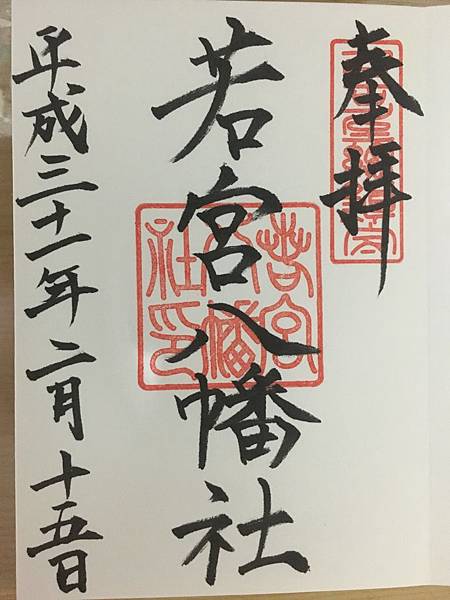 奉拝
若宮八幡社
若宮八幡社印
平成三十一年二月十五日